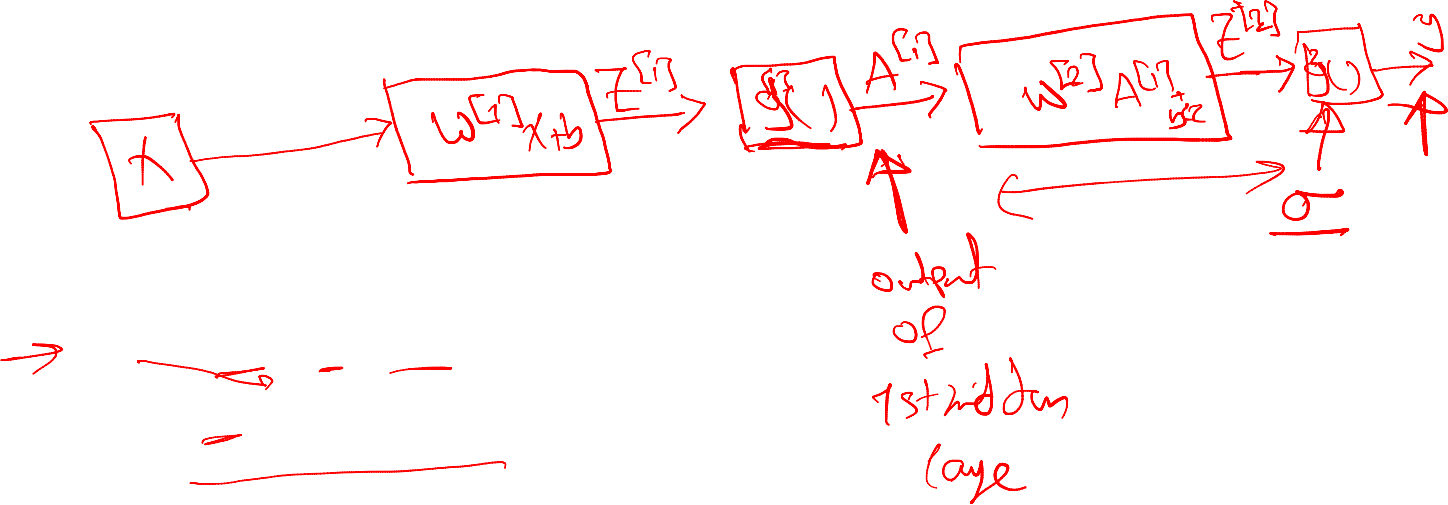 X
W^[1] X+b
Z^[1]
g^[1]( )
A^[1]
W^[2] A^[1] +
Z^[2]
g( )
y
σ
output
of
1st hidden
laye